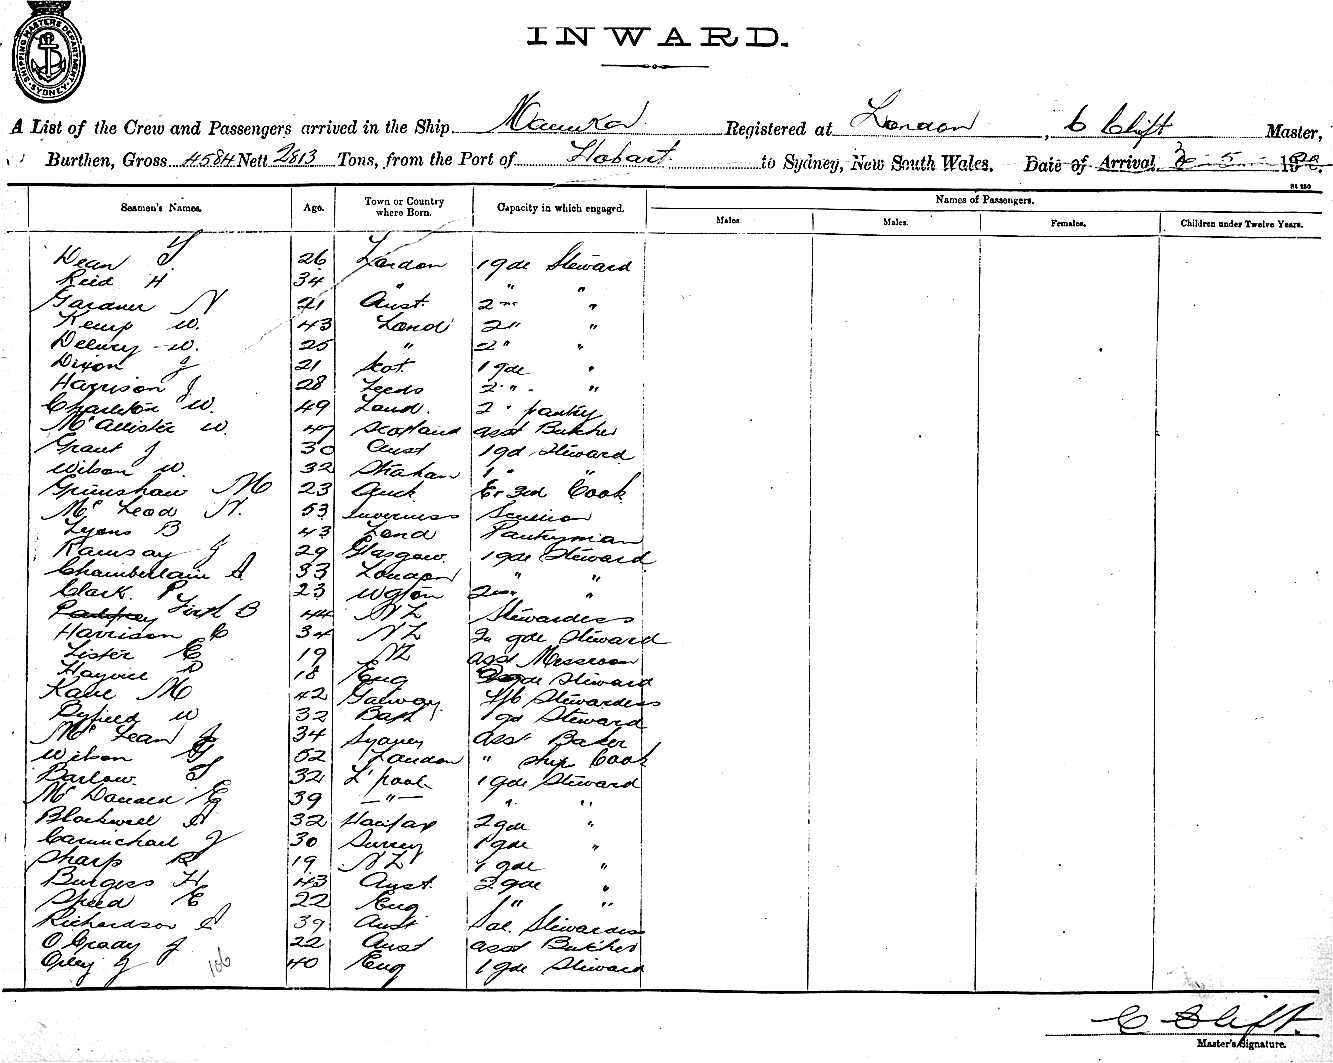 SHIPPING MASTERS DEPARTMENT SYDNEY
INWARD.
A List of the Crew and Passengers arrived in the Ship Manuka Registered at London, C Clift Master,
Burthen, Gross 4584 Nett 2813 Tons, from the Port of Hobart to Sydney, New South Wales. Date of Arrival 5 19
St 250
Seamen's Names. Age. Town or Country where Born. Capacity in which engaged. Names of Passengers.
Males. Males. Females. Children under Twelve Years.
Dean 26 London 1 gde Steward
Reid H 34 " " "
Gardner N 21 Aust. 2 "
Kemp W. 43 Lond 2 " "
Delury W. 25 " 2 " "
Dixon J 21 Scot. 1 gde "
Harrison J 28 Leeds 2 " "
Charleton W. 49 Lond. 2 " pantry
McAllister W. 47 Scotland asst Butcher
Grant J 30 Aust 1 gd Steward
Wilson W. 32 Strahan 1 " "
Grimshaw M 23 Auck Ex 3rd Cook
McLeod N. 53 Inverness
Lyons B 43 Lond Pantryman
Ramsay J 29 Glasgow 1 gde Steward
Chamberlain A 33 London " "
Clark. P 23 Wgton 2 " "
Firth B 44 NZ Stewardess
Harrison C 34 NZ 2 gde Steward
Lister E 19 NZ asst Messroom
18 Eng gde Steward
Kane M 42 Galway Stewardess
Byfield W 32 Bath 1 gd Steward
McLean J 34 Sydney asst Baker
Wilson G 52 London " ship Cook
Barlow 32 L'pool 1 gde Steward
McDonald G 39 " " "
Blackwell A 32 Halifax 2 gde "
Carmichael J 30 Surrey 1 gde "
Sharp R 19 NZ 1 gde "
Burgess H 43 Aust. 2 gde "
Speed E 22 Eng " "
Richardson A 39 Aust Sal. Stewardess
O'Grady J 22 Aust asst Butcher
J 106 40 Eng 1 gde Steward
C Clift.
Master's Signature.